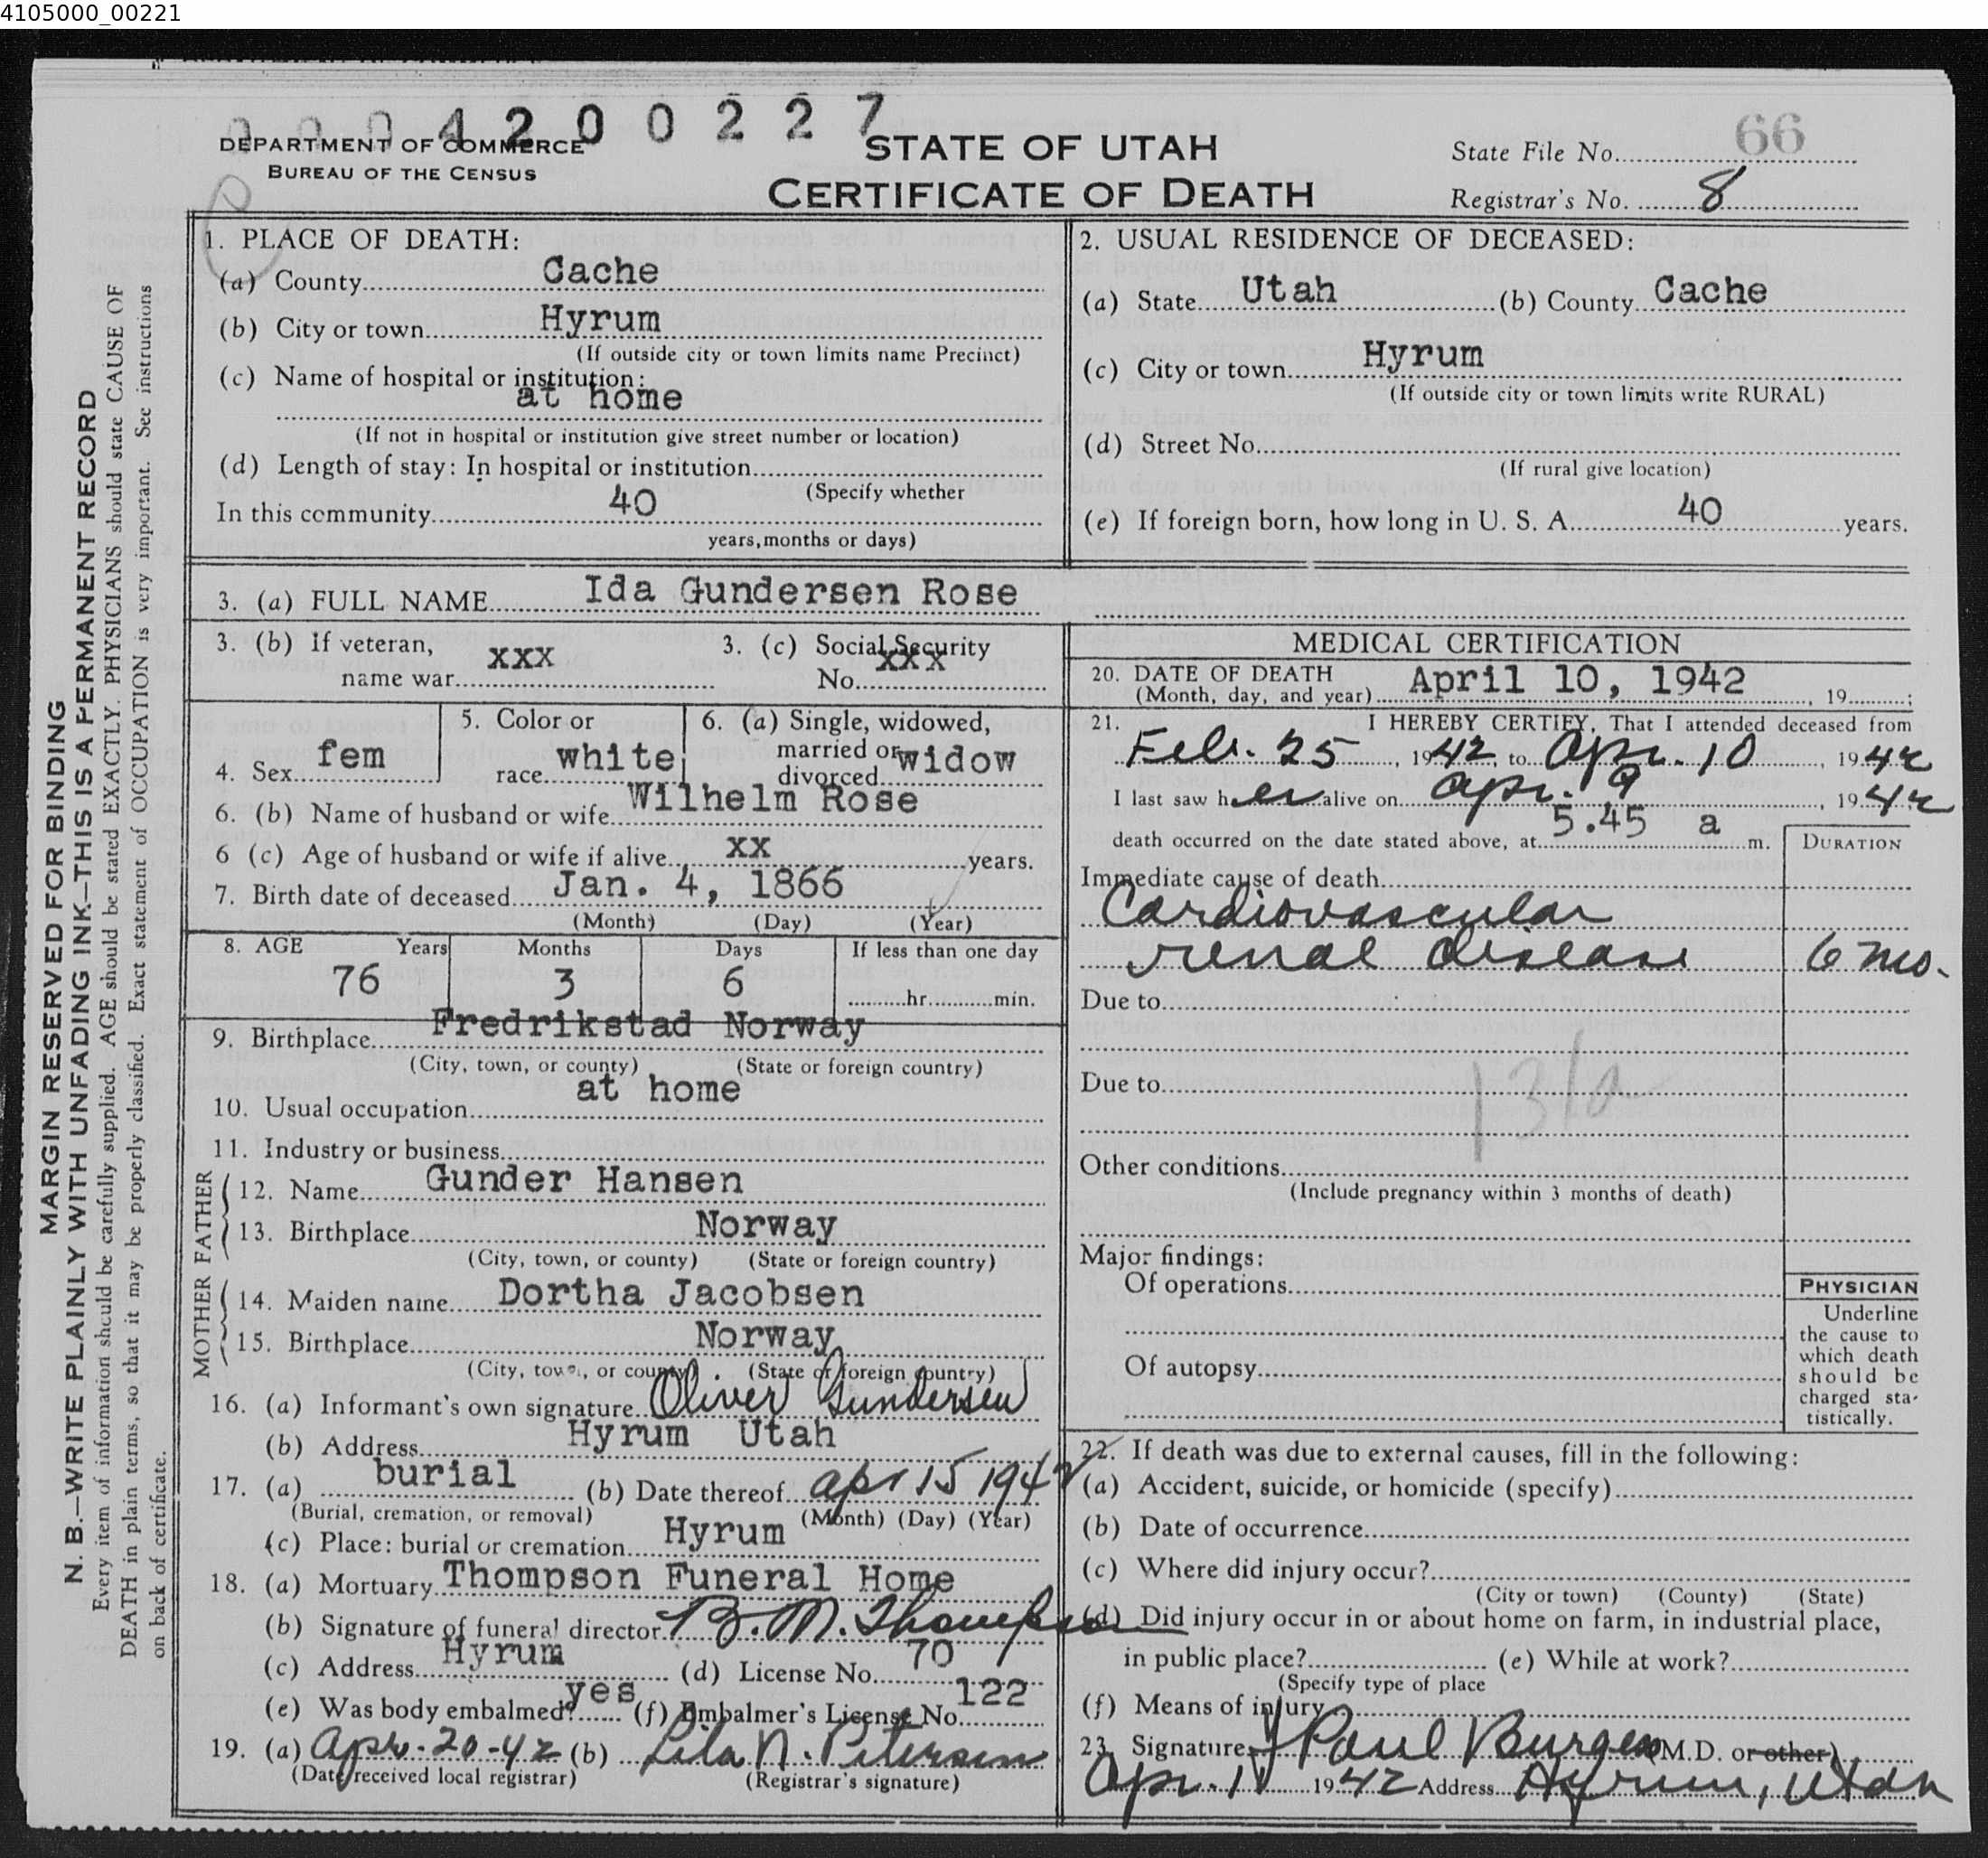 4105000_00221
0004200227
66
DEPARTMENT OF COMMERCE
BUREAU OF THE CENSUS
STATE OF UTAH
CERTIFICATE OF DEATH
State File No.
Registrar's No. 8
MARGIN RESERVED FOR BINDING
N. B.—WRITE PLAINLY WITH UNFADING INK—THIS IS A PERMANENT RECORD
Every item of information should be carefully supplied. AGE should be stated EXACTLY. PHYSICIANS should state CAUSE OF
DEATH in plain terms, so that it may be properly classified. Exact statement of OCCUPATION is very important. See instructions
on back of certificate.
1. PLACE OF DEATH:
(a) County Cache
(b) City or town Hyrum
(If outside city or town limits name Precinct)
(c) Name of hospital or institution:
at home
(If not in hospital or institution give street number or location)
(d) Length of stay: In hospital or institution
(Specify whether
In this community 40
years, months or days)
2. USUAL RESIDENCE OF DECEASED:
(a) State Utah (b) County Cache
(c) City or town Hyrum
(If outside city or town limits write RURAL)
(d) Street No.
(If rural give location)
(e) If foreign born, how long in U. S. A. 40 years.
3. (a) FULL NAME Ida Gundersen Rose
3. (b) If veteran, name war xxx
3. (c) Social Security No. xxx
4. Sex fem
5. Color or race white
6. (a) Single, widowed, married or divorced widow
6. (b) Name of husband or wife Wilhelm Rose
6 (c) Age of husband or wife if alive xx years.
7. Birth date of deceased Jan. 4, 1866
(Month) (Day) (Year)
8. AGE Years Months Days If less than one day
76 3 6 hr. min.
9. Birthplace Fredrikstad Norway
(City, town, or county) (State or foreign country)
10. Usual occupation at home
11. Industry or business
FATHER
12. Name Gunder Hansen
13. Birthplace Norway
(City, town, or county) (State or foreign country)
MOTHER
14. Maiden name Dortha Jacobsen
15. Birthplace Norway
(City, town, or county) (State or foreign country)
16. (a) Informant's own signature Oliver Gundersen
(b) Address Hyrum Utah
17. (a) burial (b) Date thereof apr 15 1942
(Burial, cremation, or removal) (Month) (Day) (Year)
(c) Place: burial or cremation Hyrum
18. (a) Mortuary Thompson Funeral Home
(b) Signature of funeral director B. M. Thompson
(c) Address Hyrum (d) License No. 70
(e) Was body embalmed? yes (f) Embalmer's License No. 122
19. (a) Apr. 20-42 (b) Lila N. Petersen
(Date received local registrar) (Registrar's signature)
MEDICAL CERTIFICATION
20. DATE OF DEATH
(Month, day, and year) April 10, 1942, 19 ;
21. I HEREBY CERTIFY, That I attended deceased from
Feb. 25, 1942, to Apr. 10, 1942
I last saw her alive on Apr. 9, 1942
death occurred on the date stated above, at 5.45 a m.
DURATION
Immediate cause of death
Cardiovascular
renal disease 6 mo.
Due to
Due to
131a
Other conditions
(Include pregnancy within 3 months of death)
Major findings:
Of operations
Of autopsy
PHYSICIAN
Underline
the cause to
which death
should be
charged sta-
tistically.
22. If death was due to external causes, fill in the following:
(a) Accident, suicide, or homicide (specify)
(b) Date of occurrence
(c) Where did injury occur?
(City or town) (County) (State)
(d) Did injury occur in or about home on farm, in industrial place,
in public place? (e) While at work?
(Specify type of place
(f) Means of injury
23. Signature J Paul Burgess M.D. or other)
Apr. 11 1942 Address Hyrum, Utah